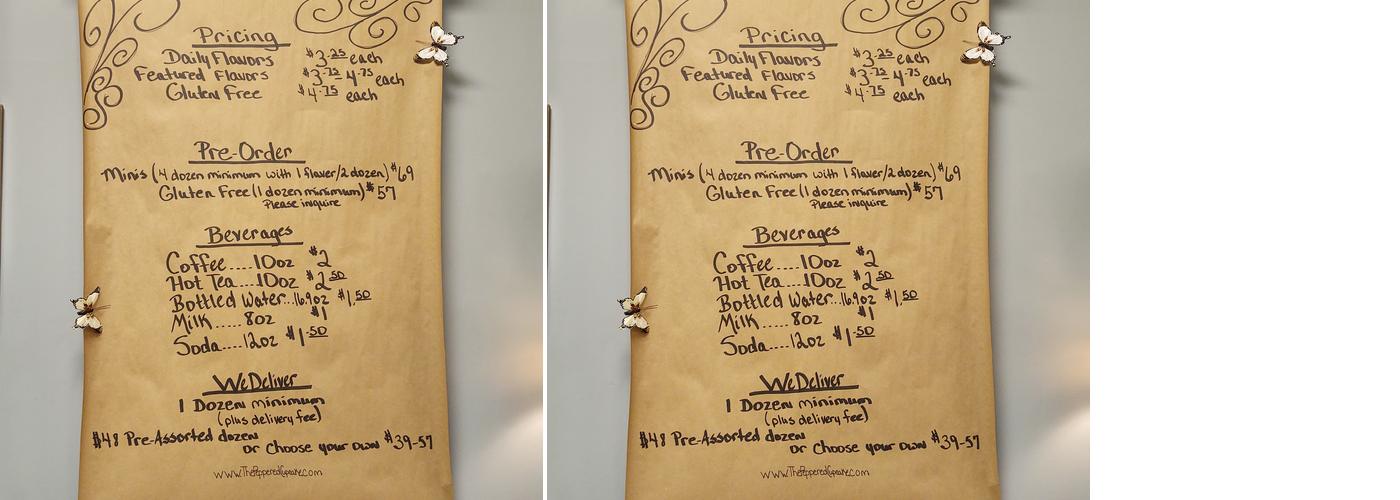 Pricing
Daily Flavors $3.25 each
Featured Flavors $3.75-4.75 each
Gluten Free $4.75 each
Pre-Order
Minis (4 dozen minimum with 1 flavor/2 dozen) $69
Gluten Free (1 dozen minimum) $57
Please inquire
Beverages
Coffee....10oz $2
Hot Tea....10oz $2.50
Bottled Water...16.9oz $1.50
Milk..... 8oz $1
Soda....12oz $1.50
We Deliver
1 Dozen minimum
(plus delivery fee)
$48 Pre-Assorted dozen
or Choose your own $39-57
Pricing
Daily Flavors $3.25 each
Featured Flavors $3.75-4.75 each
Gluten Free $4.75 each
Pre-Order
Minis (4 dozen minimum with 1 flavor/2 dozen) $69
Gluten Free (1 dozen minimum) $57
Please inquire
Beverages
Coffee....10oz $2
Hot Tea....10oz $2.50
Bottled Water...16.9oz $1.50
Milk..... 8oz $1
Soda....12oz $1.50
We Deliver
1 Dozen minimum
(plus delivery fee)
$48 Pre-Assorted dozen
or Choose your own $39-57